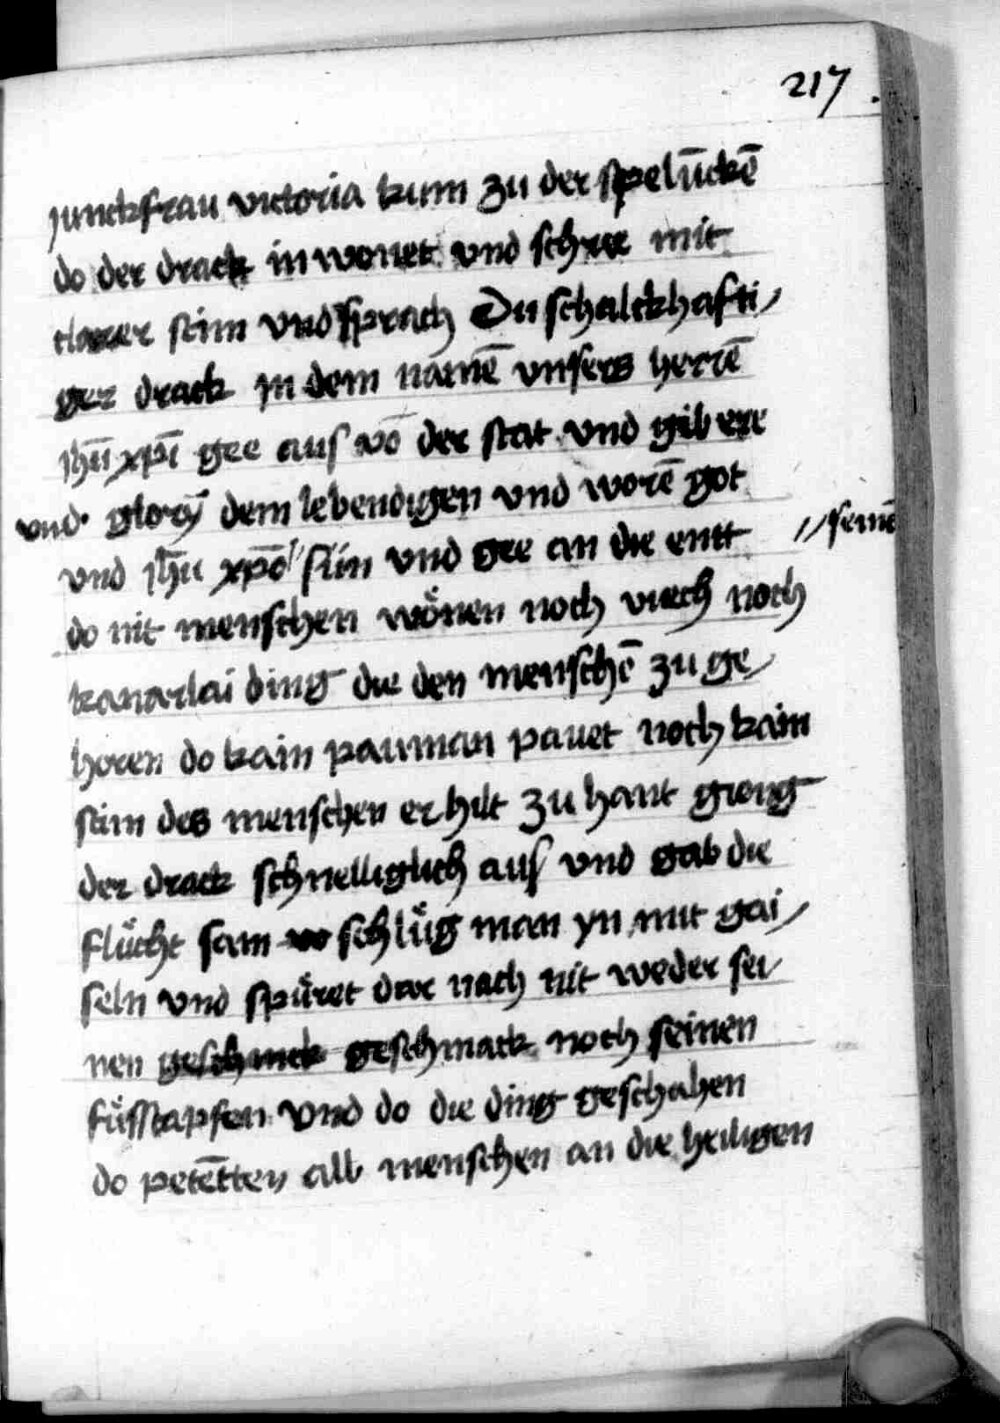 217.
junckfrau victoria kum zu der spelūckē
do der drack in wonet und schree mit
clarer stim und sprach Du schalckhafti/
ger drack in dem namē unsers herrē
jhū xpī gee aus vō der stat und gib ere
und glory dem lebendigen und worē got
und jhū xpō sün und gee an die entt // seinē
do nit menschen wönen noch viech noch
kanarlai ding die den menschē zu ge/
horen do kain pauman pauet noch kain
stim des menschen erhilt zu hant gieng
der drack schnelliglich aus und gab die
flücht sam schlüg man yn mit gai/
seln und spüret dar nach nit weder sei/
nen geschmack noch seinen
füsstapfen und do die ding geschahen
do petētten all menschen an die heiligen